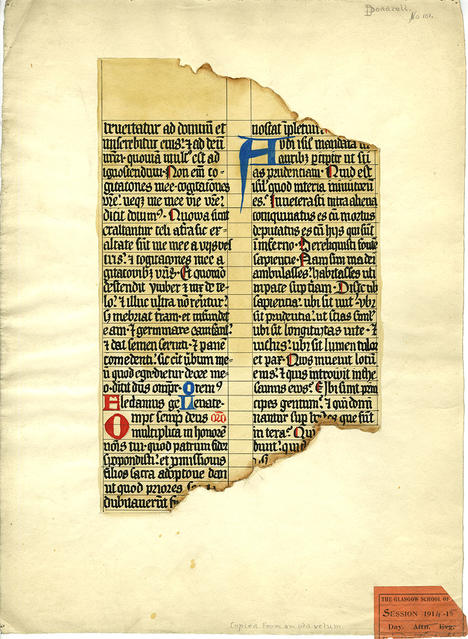 Donazeli.
No 101.
revertatur ad dominū et
miserebitur eius: ⁊ ad deū
nr̄m: quoniā mult' est ad
ignoscendum. Non em̄ co-
gitatones mee cogitatones
vr̄e: neqꝫ vie mee vie vr̄e:
dicit dominꝰ. Quonia sicut
exaltantur celi a t̄ra sic ex-
altate sūt vie mee a viis vest
tris: ⁊ cogitatones mee a
gitatonibꝫ vr̄is. Et quomō
descendit ymber ⁊ nix de ce-
lo: ⁊ illuc ultra nō reūtur:
s; inebriat t̄ram: et infundit
eam: ⁊ germinare eam facit:
⁊ dat semen serenti: ⁊ panē
comedenti: sic erit v̄bum me-
ū quod egredietur de ore me-
o. dicit dn̄s omp̄r. Oremꝰ
Flectamus ge. Levate.
Omp̄c semp̄ deus or̄o
multiplica in honorē
nōis tui quod patrum fidei
spopondisti: et promissionis
filios sacra adoptone
ut quod priores
dubitaverūt
nostat īpletur
Audi isrl̄ mandata
auribꝫ percipe ut sci
as prudenciam. Quid est
isrl̄ quod in terra inimicorū
es: Inveterasti in tra aliena
coinquinatus es cū mortuis
deputatus es cū hijs qui sūt
in inferno. Dereliquisti fontē
sapiencie. Nam si in via dei
ambulasses: habitasses uti
in pace sup̄ t̄ram. Disce ubi
sapiencia: ubi sit virt': ubi
sit prudencia: ut scias simul
ubi sit longitutas vite. ⁊
victus: ubi sit lumen oculoꝝ
et pax. Quis invenit locū
eius: ⁊ quis introivit in the
sauros eius: Ubi sunt prin
cipes gentium: ⁊ qui domi
nantur sup̄ que sūt
in terra: Qui
bunt: quid
THE GLASGOW SCHOOL OF
SESSION 1914-15
Day. Aftn. Evg.
Copied from an old velum